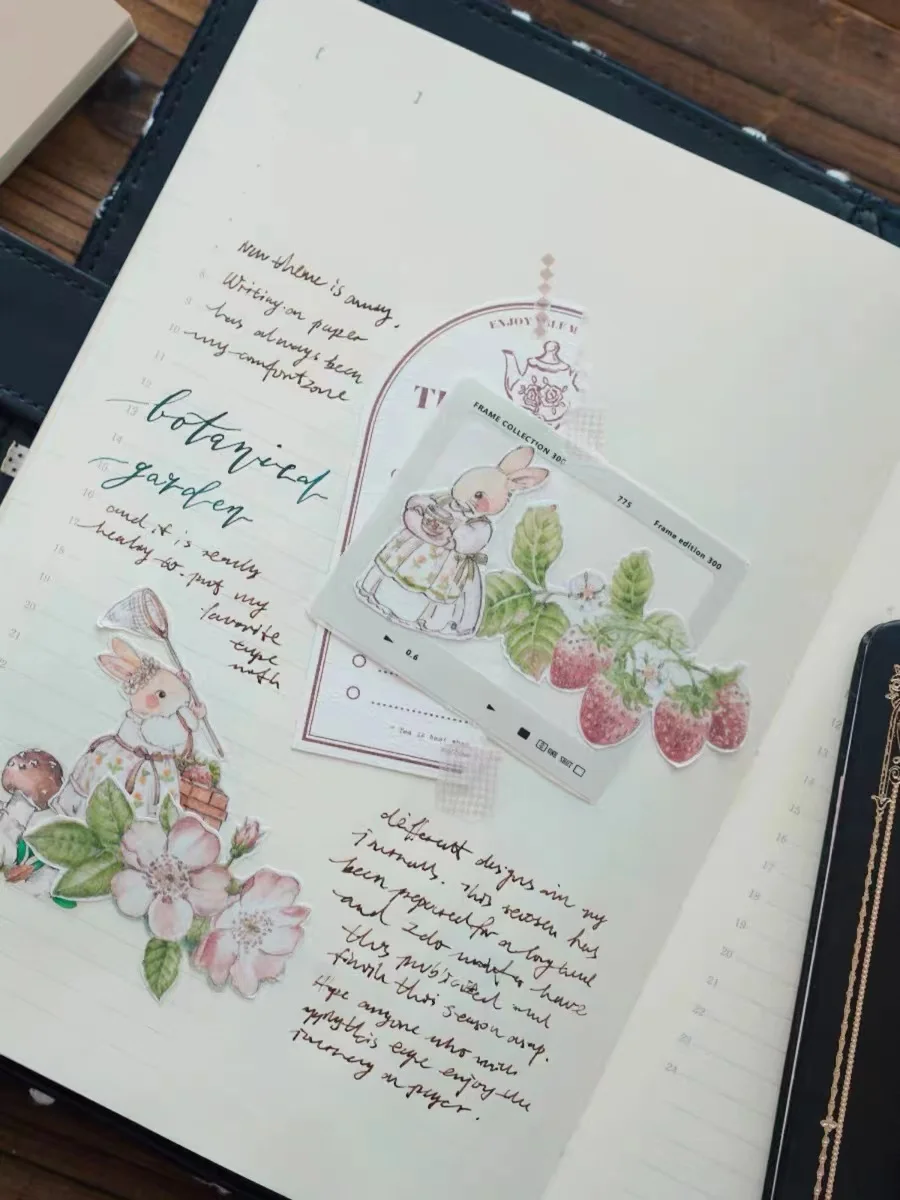 New theme is away.
Writing on paper
has always been
my comfort zone
botanical
garden
and it is really
healing to put my
favorite
tape
with
ENJOY
FRAME COLLECTION 300
775
Frame edition 300
0.6
ONE SHOT
different designs in my
journals. This season has
been prepared for a long time
and I do
have
this published and
finish this season asap.
Hope anyone who
apply this tape enjoy the
journey on paper.
8
9
10
11
12
13
14
15
16
17
18
19
20
21
22
12
13
14
15
16
17
18
19
20
21
22
23
24